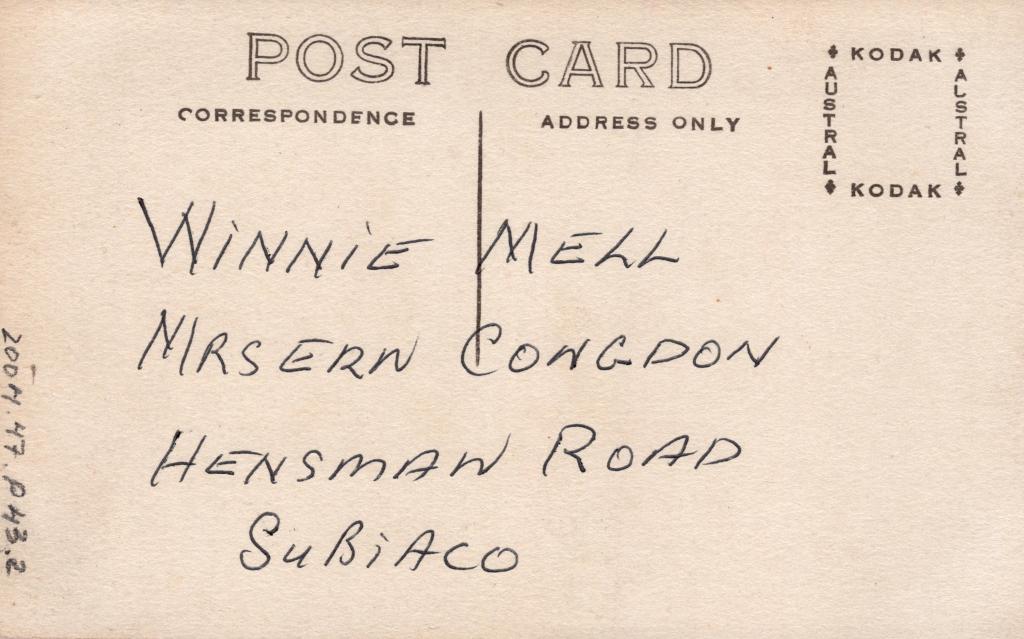 POST CARD
CORRESPONDENCE
ADDRESS ONLY
KODAK
AUSTRAL
AUSTRAL
KODAK
WiNNiE MELL
MRS ERN CONGDON
HENSMAN ROAD
SuBiACO
2004.47.P43.2